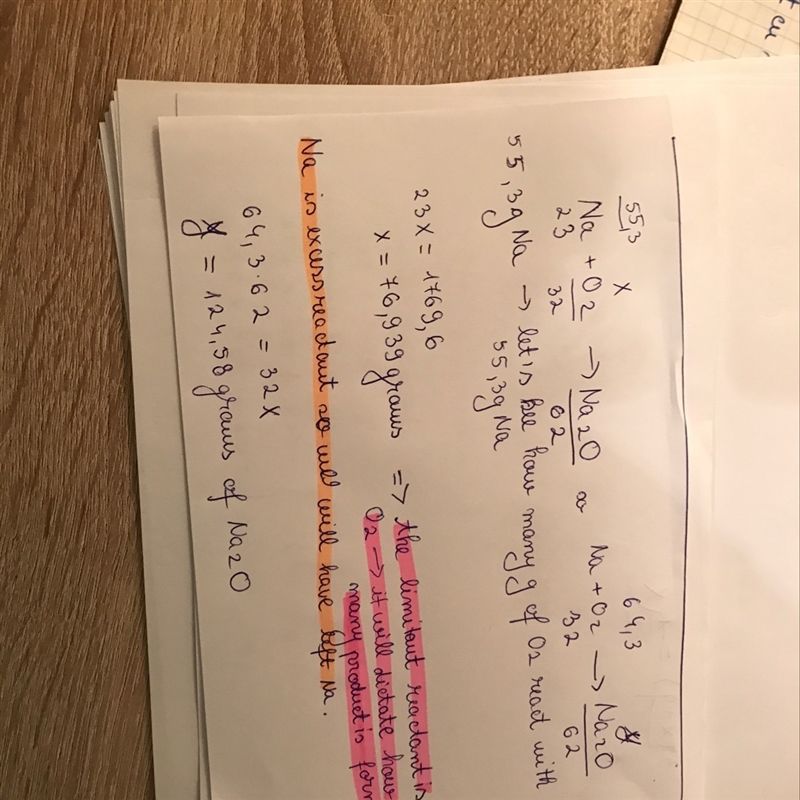 55,3 X 64,3 y
Na + O2 → Na2O ∞ Na + O2 → Na2O
23 32 62 32 62
55,3g Na → let's see how many g of O2 react with
55,3g Na
23x = 1769,6
x = 76,939 grams => the limitant reactant is
O2 → it will dictate how
many product is form
Na is excess reactant so will will have left Na.
64,3 · 62 = 32x
y = 124,58 grams of Na2O